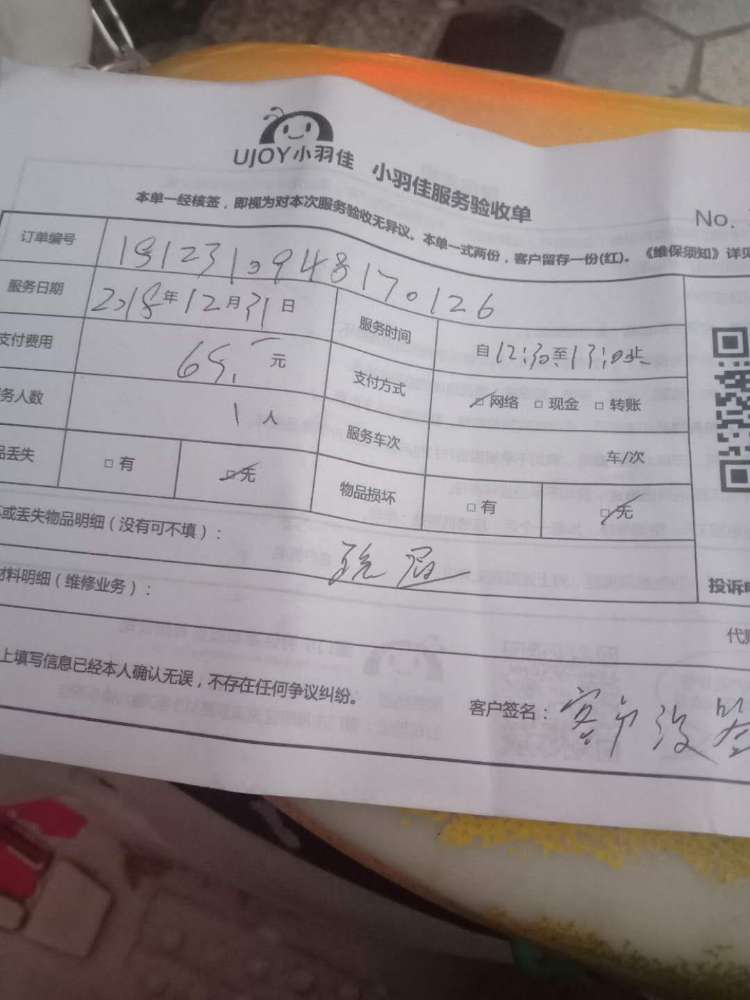 UJOY小羽佳 小羽佳服务验收单
No.
本单一经核签，即视为对本次服务验收无异议。本单一式两份，客户留存一份(红)。《维保须知》详见
订单编号 1812310948170126
服务日期 2018年12月31日 服务时间 自12:30至13:00止
支付费用 65.一元 支付方式 网络 现金 转账
务人数 1人 服务车次 车/次
品丢失 有 无 物品损坏 有 无
或丢失物品明细（没有可不填）：
材料明细（维修业务）：
投诉电
代贝
上填写信息已经本人确认无误，不存在任何争议纠纷。
客户签名：客户没签